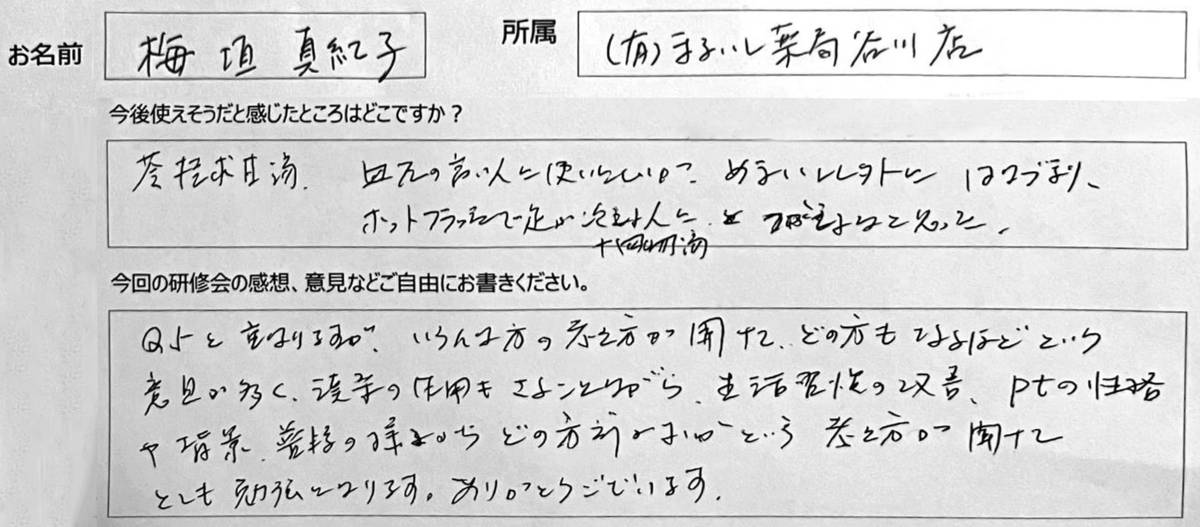 お名前 梅垣 真紀子 所属 (有)まるいし薬局谷川店
今後使えそうだと感じたところはどこですか?
苓桂朮甘湯. 血圧の高い人に使いにくいが、めまい以外に
ホットフラッシュで足が冷える人に
十四物湯
今回の研修会の感想、意見などご自由にお書きください。
Q5と重なりますが、いろんな方の考え方が聞けて、どの方もなるほどという
意見が多く、漢薬の作用もさることながら、生活習慣の改善、ptの性格
や背景、普段の様子からどの方剤がよいかという考え方が聞けて
とても勉強になります。ありがとうございます.